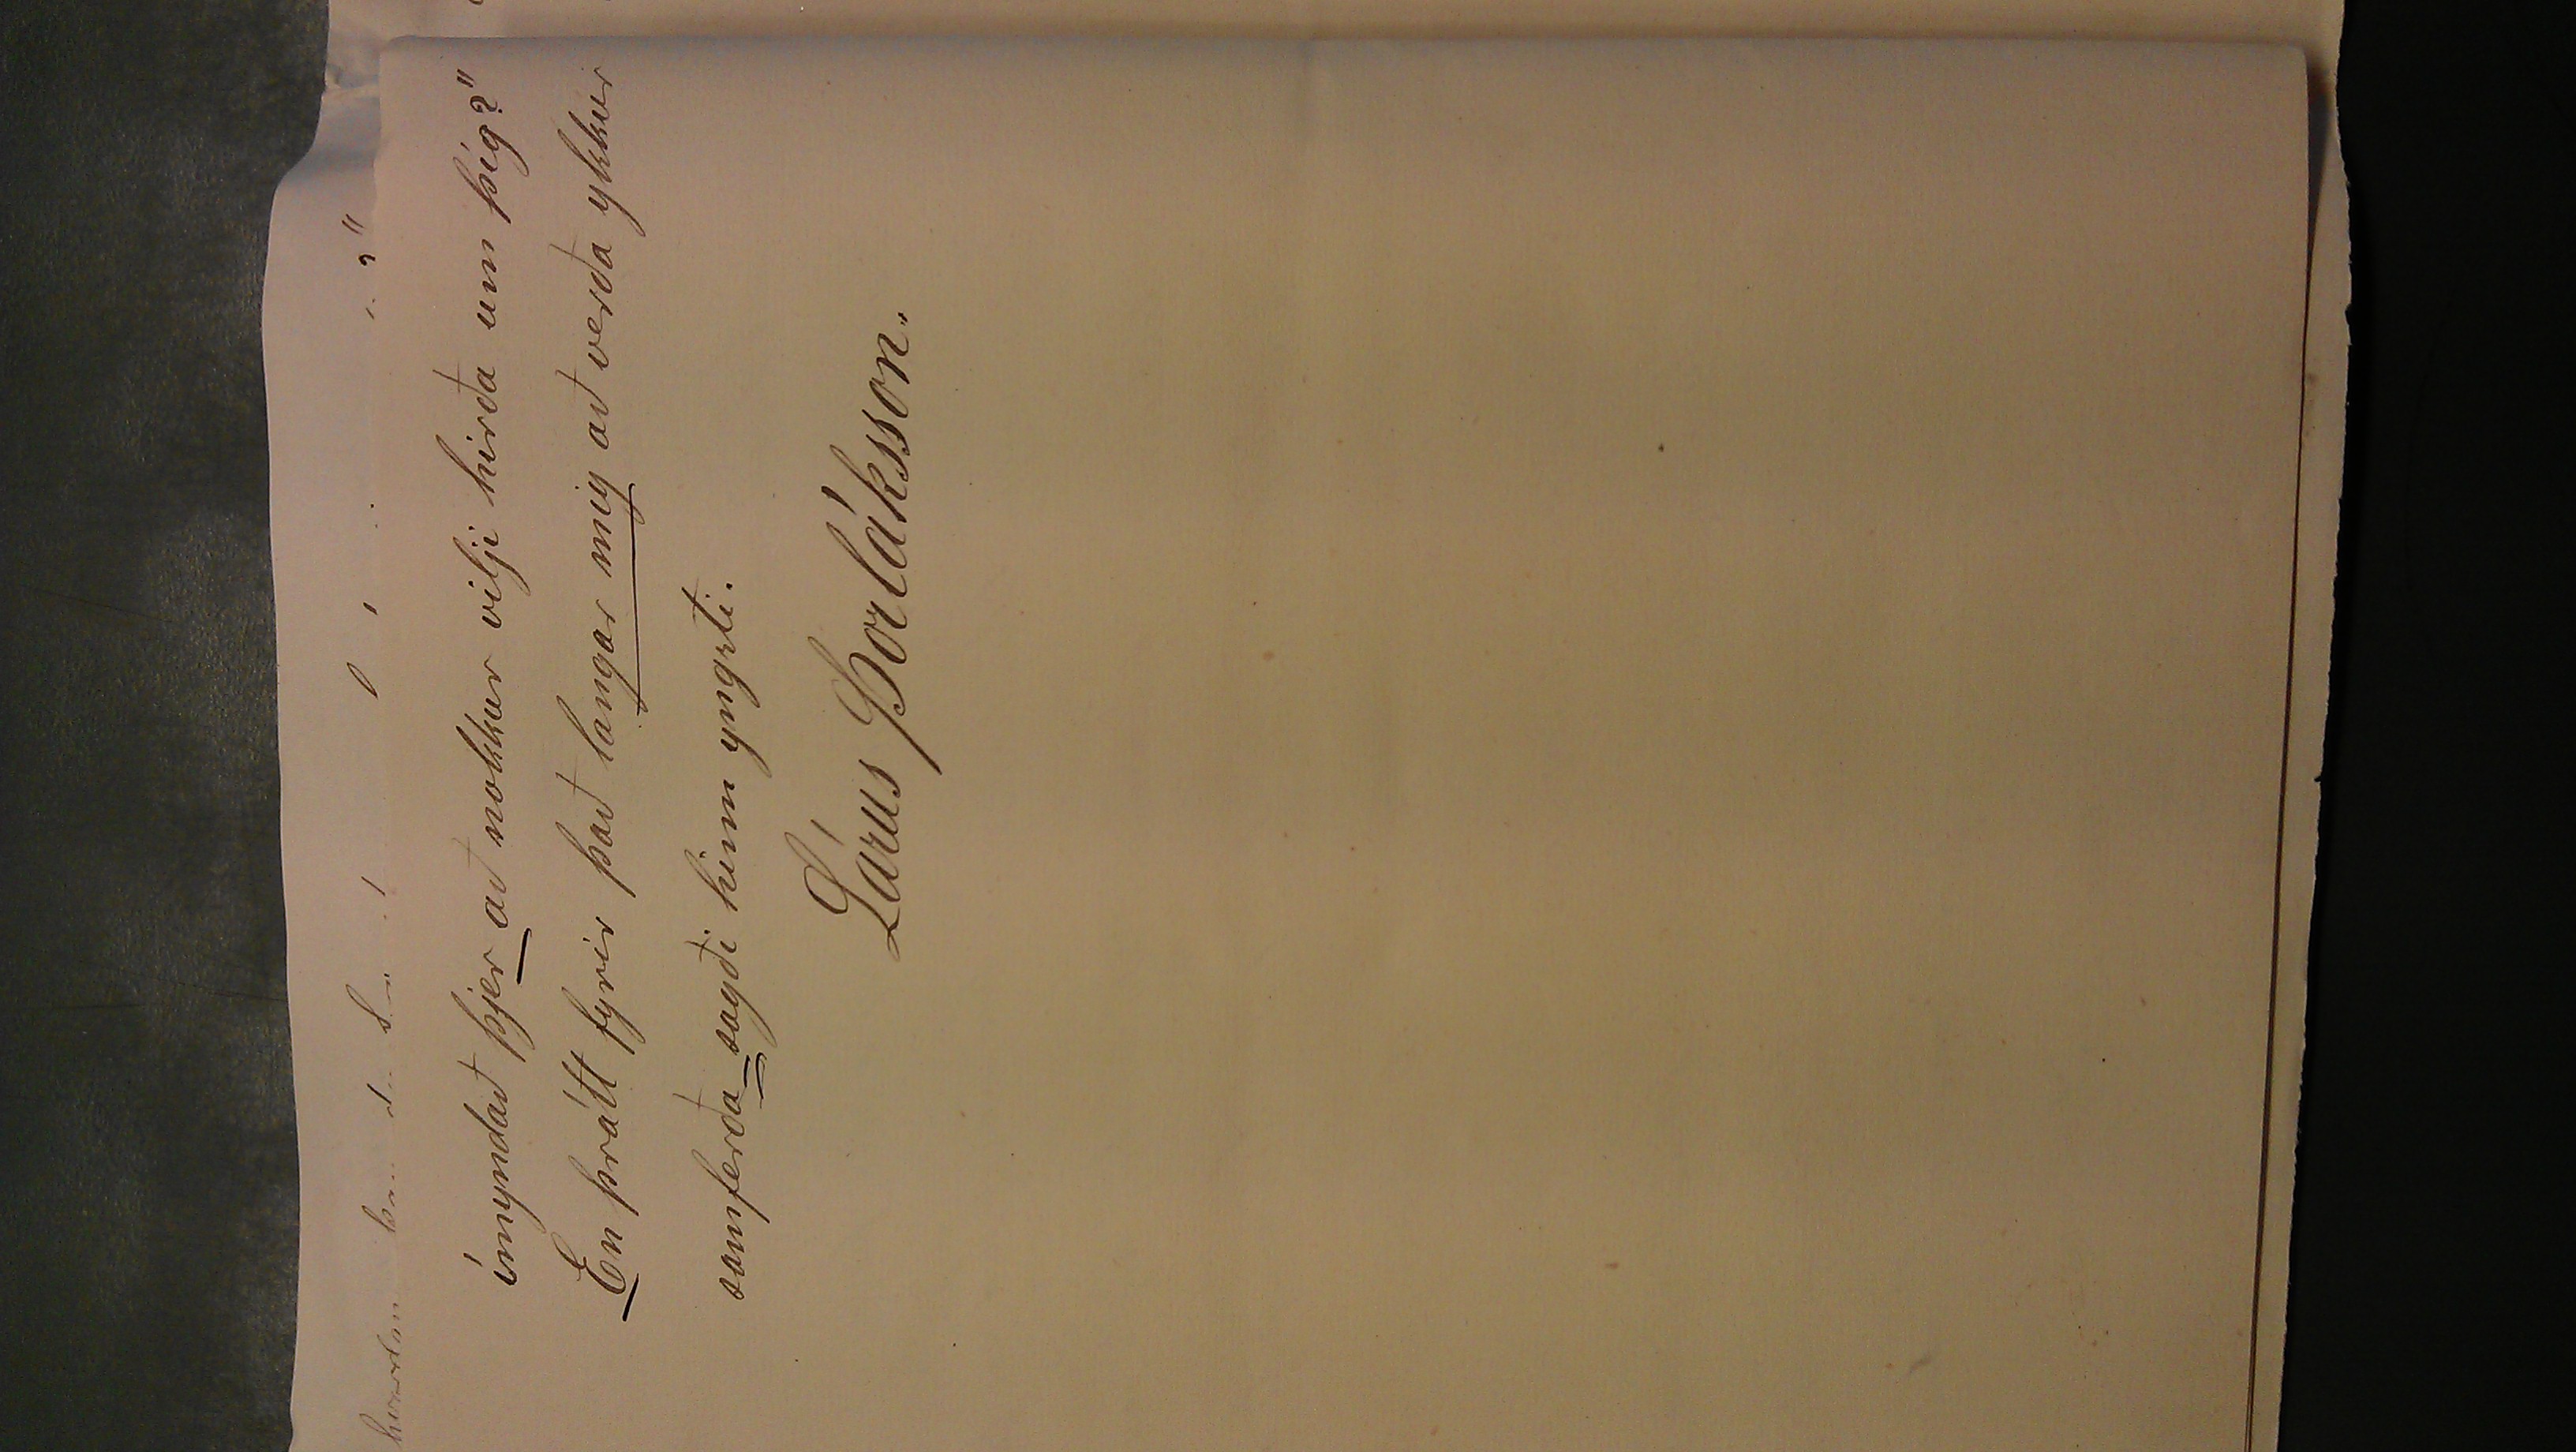 ímyndað þjer að nokkur vilji hirða um þig?"
En þrátt fyrir það langar mig að verða ykkur
samferða sagði hinn yngsti.
Lárus Þorláksson.